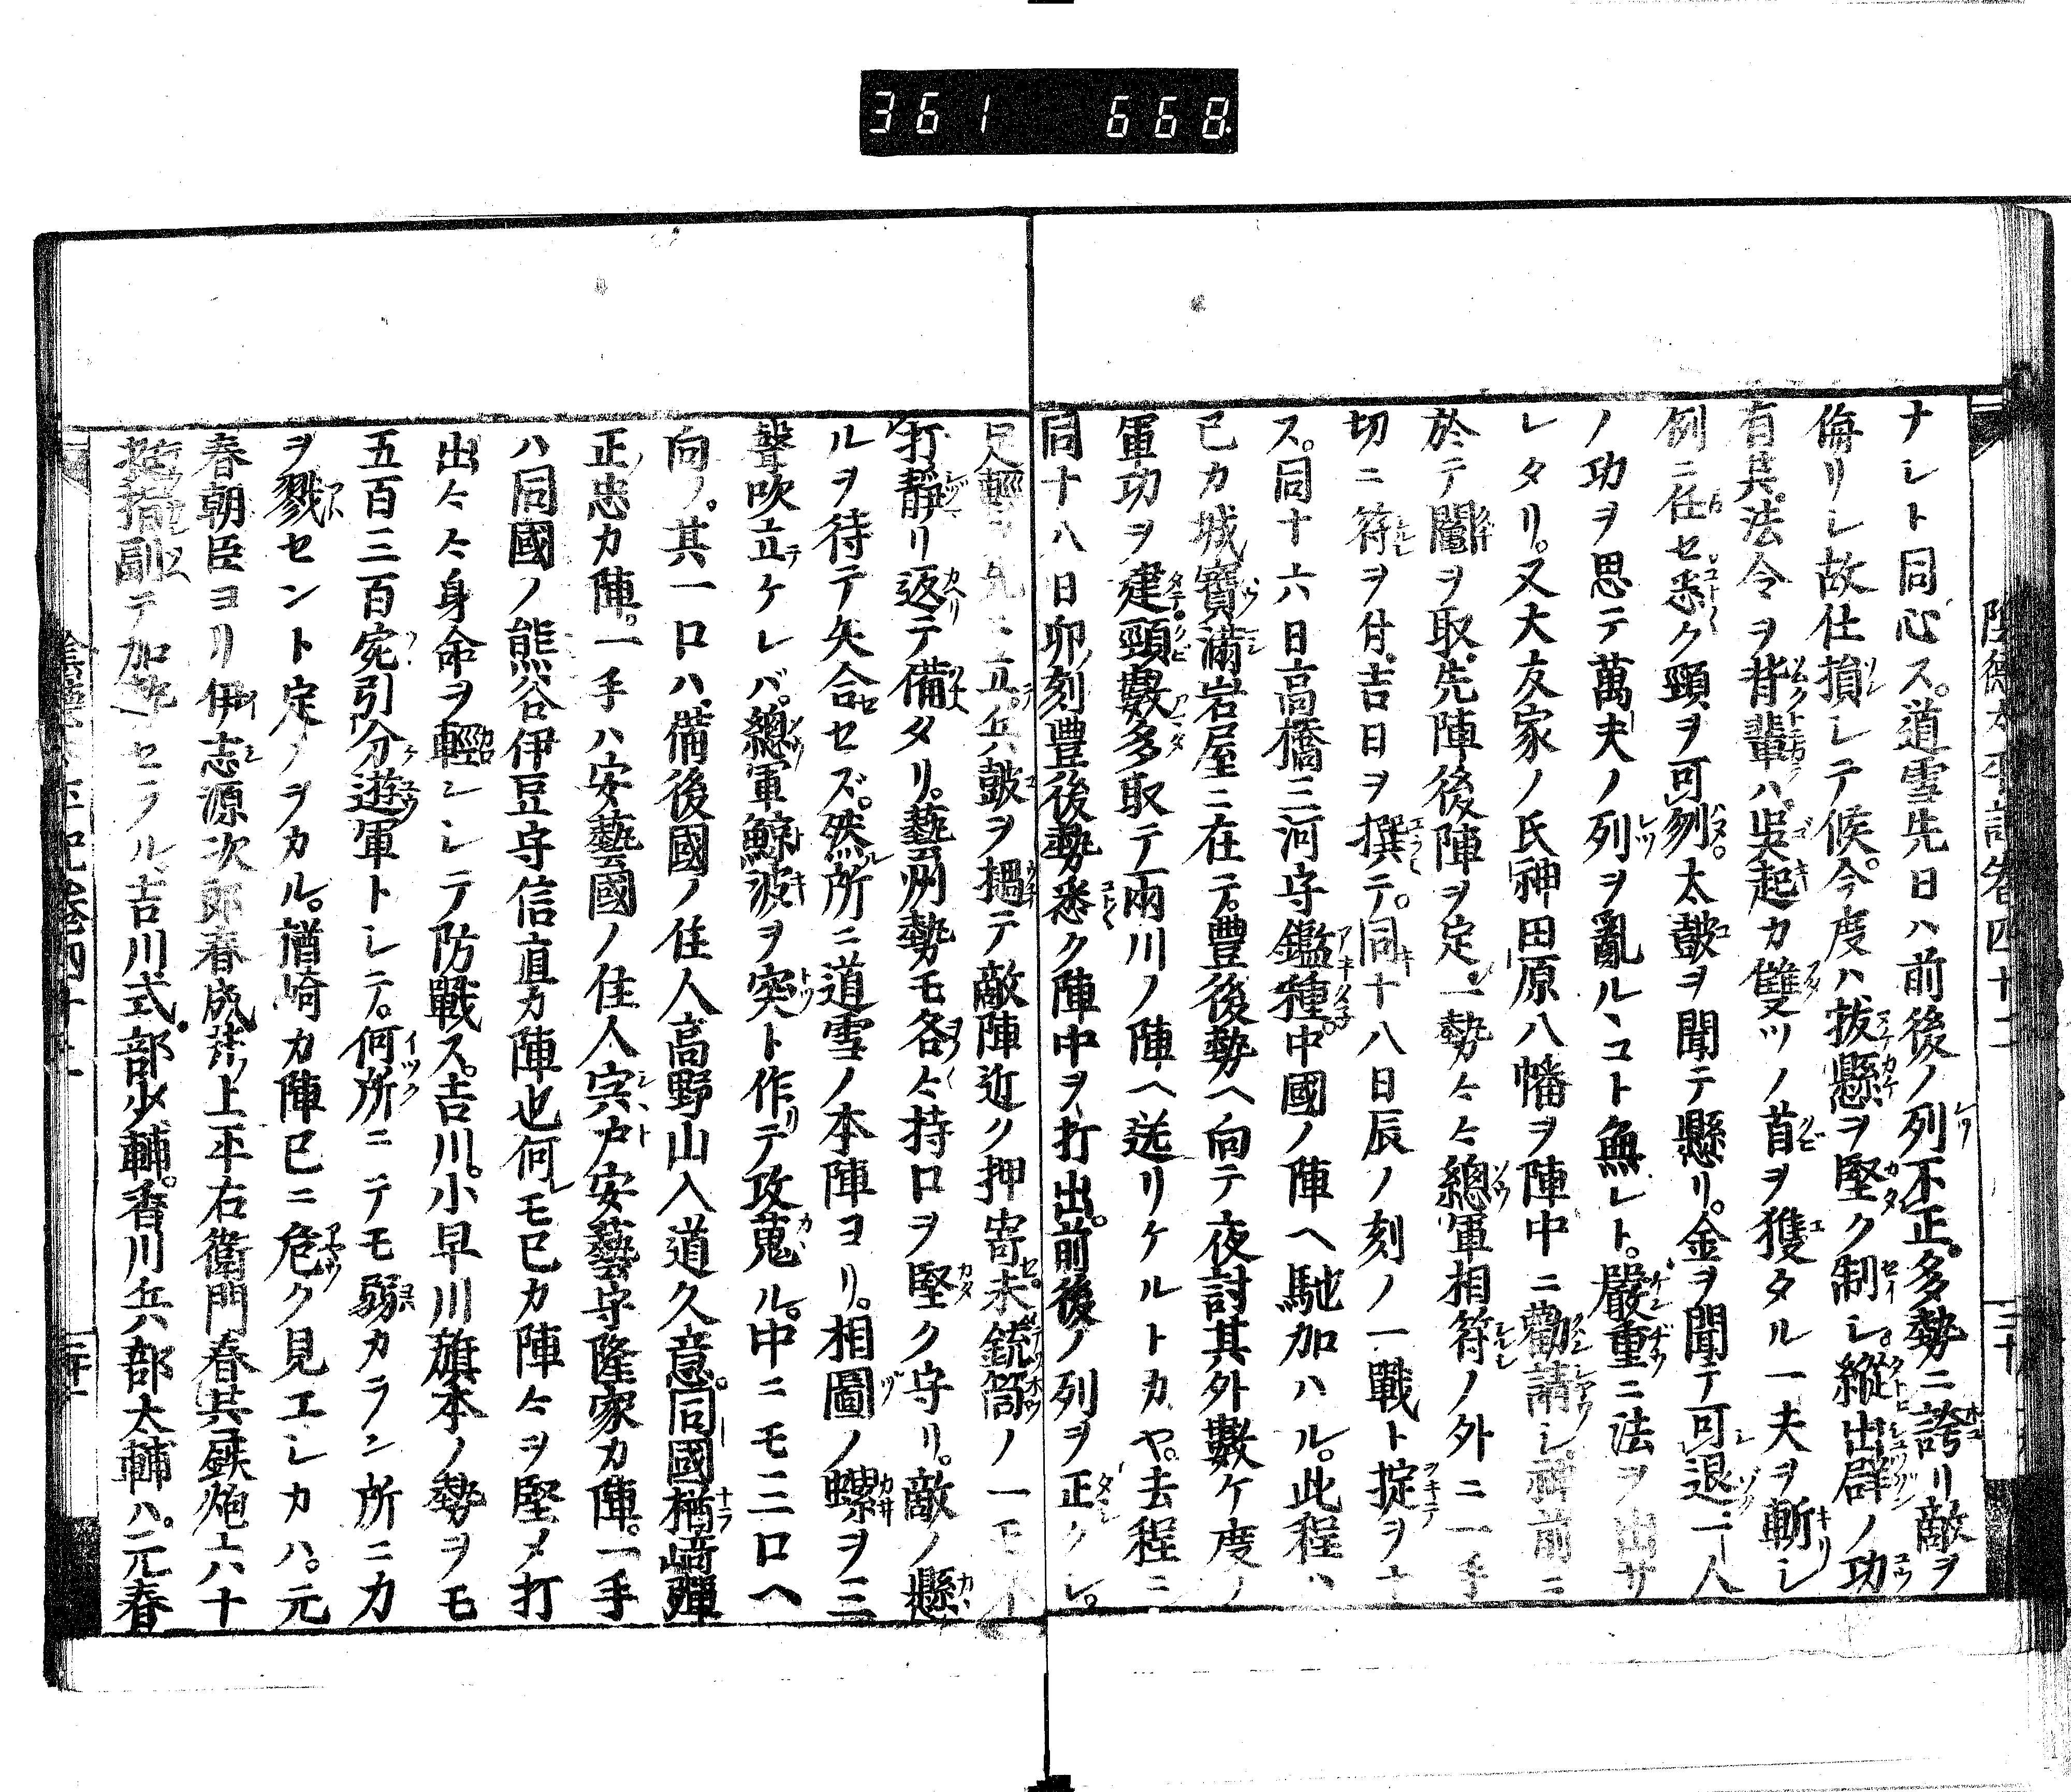 361 668
ナレト同心ス。道雪先日ハ前後ノ列不正。多勢ニ誇リ敵ヲ
侮リシ故仕損シテ候。今度ハ拔懸ヲ堅ク制シ。縱出群ノ功
有共。法令ヲ背輩ハ。吳起カ雙ツノ首ヲ獲タル一夫ヲ斬シ
例ニ任セ悉ク頸ヲ可刎。太皷ヲ聞テ懸リ。金ヲ聞テ可退。一人
ノ功ヲ思テ萬夫ノ列ヲ亂ルヽコト無レト。嚴重ニ法ヲ出サ
レタリ。又大友家ノ氏神田原八幡ヲ陣中ニ勸請シ。神前ニ
於テ鬮ヲ取。先陣後陣ヲ定。一勢々々總軍相符ノ外ニ一手
切ニ符ヲ付。吉日ヲ撰テ。同十八日辰ノ刻ノ一戰ト掟ヲ
ス。同十六日高橋三河守鑑種。中國ノ陣ヘ馳加ハル。此程ハ
己カ城寶滿岩屋ニ在テ。豐後勢ヘ向テ夜討其外數ケ度ノ
軍功ヲ建。頸數多取テ兩川ノ陣ヘ送リケルトカヤ。去程ニ
同十八日卯刻豐後勢悉ク陣中ヲ打出。前後ノ列ヲ正クシ。
足輕ヲ先ニ立。兵皷ヲ擉テ敵陣近ク押寄。未銃筒ノ一モ不
打靜リ返テ備タリ。藝州勢モ各々持口ヲ堅ク守リ。敵ノ懸
ルヲ待テ矢合セズ。然所ニ道雪ノ本陣ヨリ。相圖ノ螺ヲ三
聲吹立テケレバ。總軍鯨波ヲ突ト作リテ攻蒐ル。中ニモ三口ヘ
向フ。其一口ハ備後國ノ住人高野山入道久意。同國楢﨑彈
正忠カ陣。一手ハ安藝國ノ住人宍戸安藝守隆家カ陣。一手
ハ同國ノ熊谷伊豆守信直カ陣也。何モ己カ陣々ヲ堅メ打
出々々身命ヲ輕シシテ防戰ス。吉川。小早川旗本ノ勢ヲモ
五百三百宛引分遊軍トシテ。何所ニテモ弱カラン所ニ力
ヲ戮セント定ノヲカル。楢崎カ陣已ニ危ク見エシカハ。元
春朝臣ヨリ伊志源次郎春成。井上平右衛門春其。鉄炮六十
挺指副テ加勢セラル。吉川式部少輔。香川兵部太輔ハ。元春